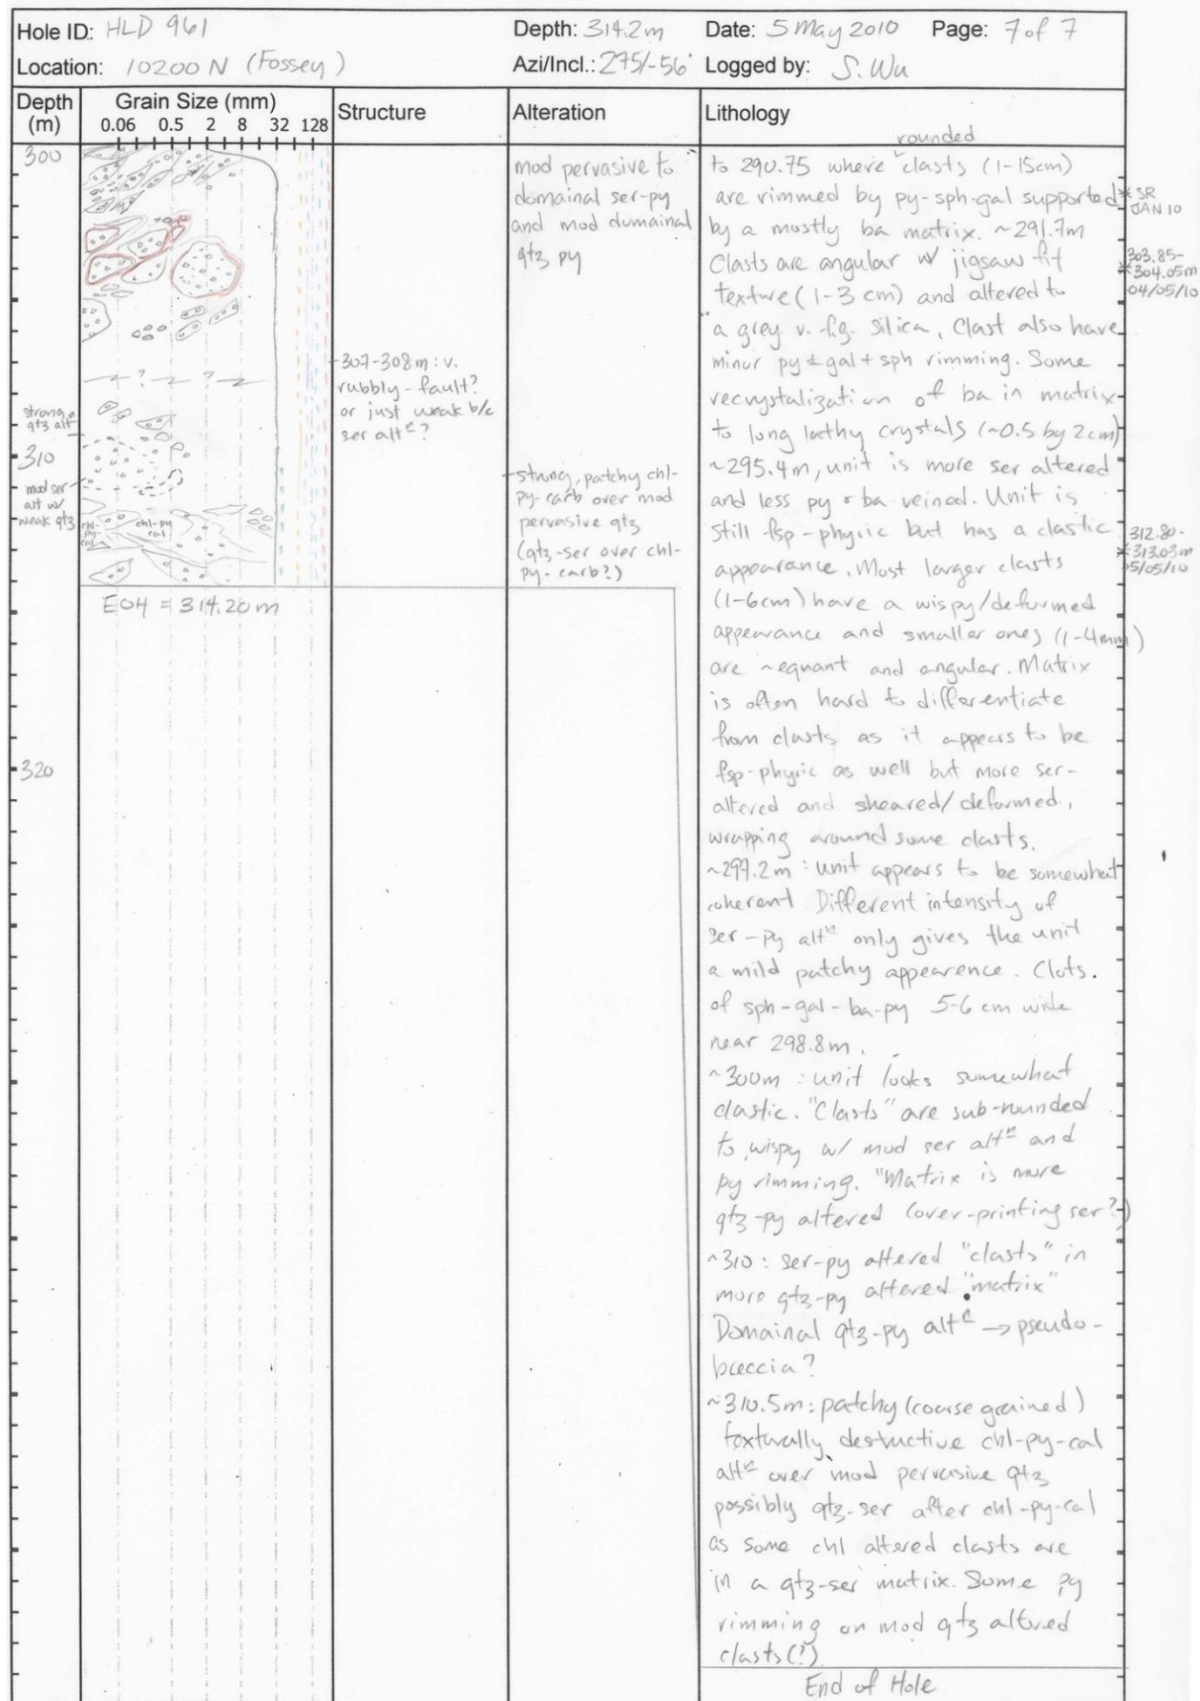 Hole ID: HLD 961 Depth: 314.2m Date: 5 May 2010 Page: 7 of 7
Location: 10200 N (Fossey) Azi/Incl.: 275/-56° Logged by: S. Wu
Depth (m) Grain Size (mm) Structure Alteration Lithology
0.06 0.5 2 8 32 128
300
strong
qtz alt
310
mod ser
alt w/
weak qtz
chl-
py-
cal
chl-py
cal
? ? ?
EOH = 314.20m
320
-307-308m: v.
rubbly-fault?
or just weak b/c
ser altⁿ?
mod pervasive to
domainal ser-py
and mod domainal
qtz py
-strong, patchy chl-
py-carb over mod
pervasive qtz
(qtz-ser over chl-
py-carb?)
rounded
to 290.75 where clasts (1-15cm)
are rimmed by py-sph-gal supported
by a mostly ba matrix. ~291.7m
Clasts are angular w/ jigsaw fit
texture (1-3 cm) and altered to
a grey v. f.g. silica, Clast also have
minor py ± gal + sph rimming. Some
recrystalization of ba in matrix
to long lathy crystals (~0.5 by 2cm)
~295.4m, unit is more ser altered
and less py + ba veined. Unit is
still fsp-phyric but has a clastic
appearance. Most larger clasts
(1-6cm) have a wispy/deformed
appearance and smaller ones (1-4mm)
are ~equant and angular. Matrix
is often hard to differentiate
from clasts as it appears to be
fsp-phyric as well but more ser-
altered and sheared/deformed,
wrapping around some clasts.
~297.2m: unit appears to be somewhat
coherent Different intensity of
ser-py altⁿ only gives the unit
a mild patchy appearence. Clots.
of sph-gal-ba-py 5-6 cm wide
near 298.8m.
~300m: unit looks somewhat
clastic. "Clasts" are sub-rounded
to wispy w/ mod ser altⁿ and
py rimming. "Matrix is more
qtz-py altered (over-printing ser?)
~310: ser-py altered "clasts" in
more qtz-py altered "matrix"
Domainal qtz-py altⁿ → pseudo-
breccia?
~310.5m: patchy (coarse grained)
texturally destructive chl-py-cal
altⁿ over mod pervasive qtz
possibly qtz-ser after chl-py-cal
as some chl altered clasts are
in a qtz-ser matrix. Some py
rimming on mod qtz altered
clasts(?)
End of Hole
* SR
JAN 10
303.85-
* 304.05m
04/05/10
312.80-
* 313.03m
5/05/10